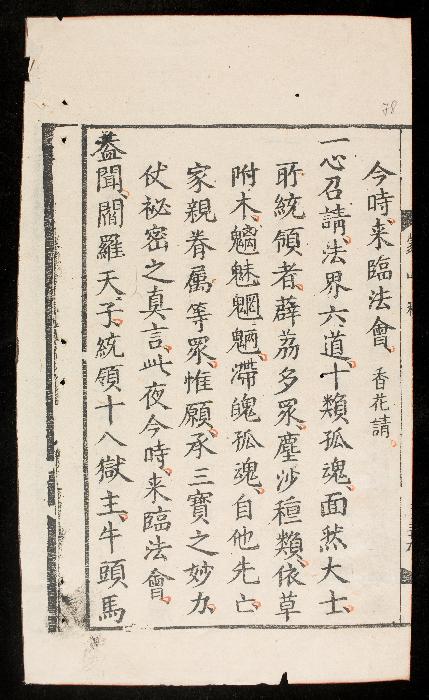 今時来臨法會 香花請
一心召請法界六道十類孤魂面然大士
所統領者薜荔多眾塵沙種類依草
附木魑魅魍魎滯魄孤魂自他先亡
家親眷属等眾惟願承三寶之妙力
仗祕密之真言此夜今時来臨法會
盖聞閻羅天子統領十八獄主牛頭馬
78